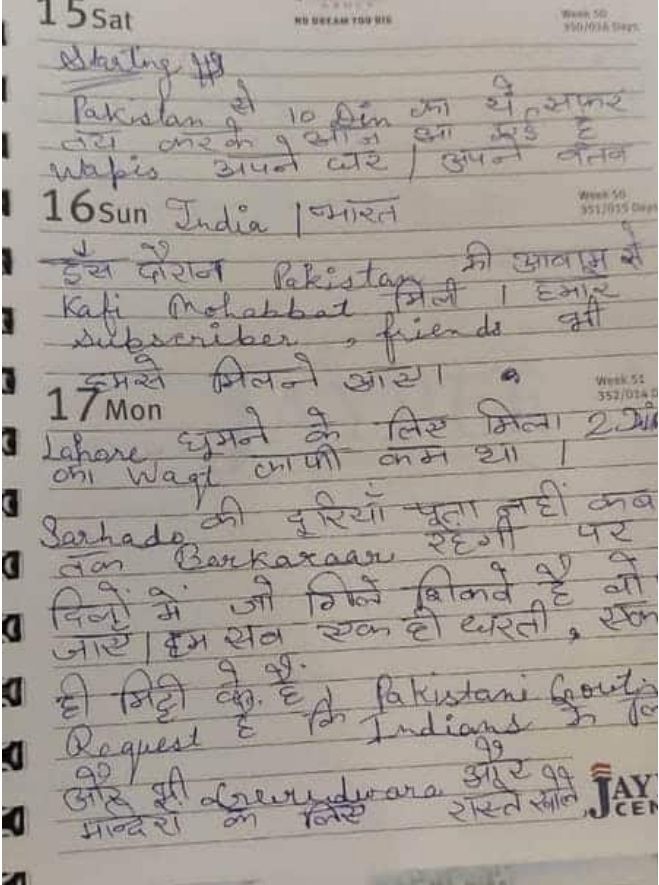 15 Sat
NO DREAM TOO BIG
Week 50
350/016 Days
Starting
Pakistan से 10 Din का ये सफर
तय करके आज आ गई है
Wapis अपने घर । अपने वतन
16 Sun India । भारत
Week 50
351/015 Days
इस दौरान Pakistan की आवाम से
Kafi Mohabbat मिली । हमारे
subscriber, friends भी
हमसे मिलने आए।
Week 51
17 Mon
Lahore घूमने के लिए मिला 2 Din
का Waqt काफी कम था ।
Sarhado की दूरियाँ पता नहीं कब
तक Barkaraar रहेगी पर
दिलों में जो गिले शिकवे है वो
जाए। हम सब एक ही धरती, एक
ही मिट्टी के है । Pakistani Govt
Request है कि Indians के
और भी Gurudwara और
मन्दिरों के लिए रास्ते खोले
JAY
CEN